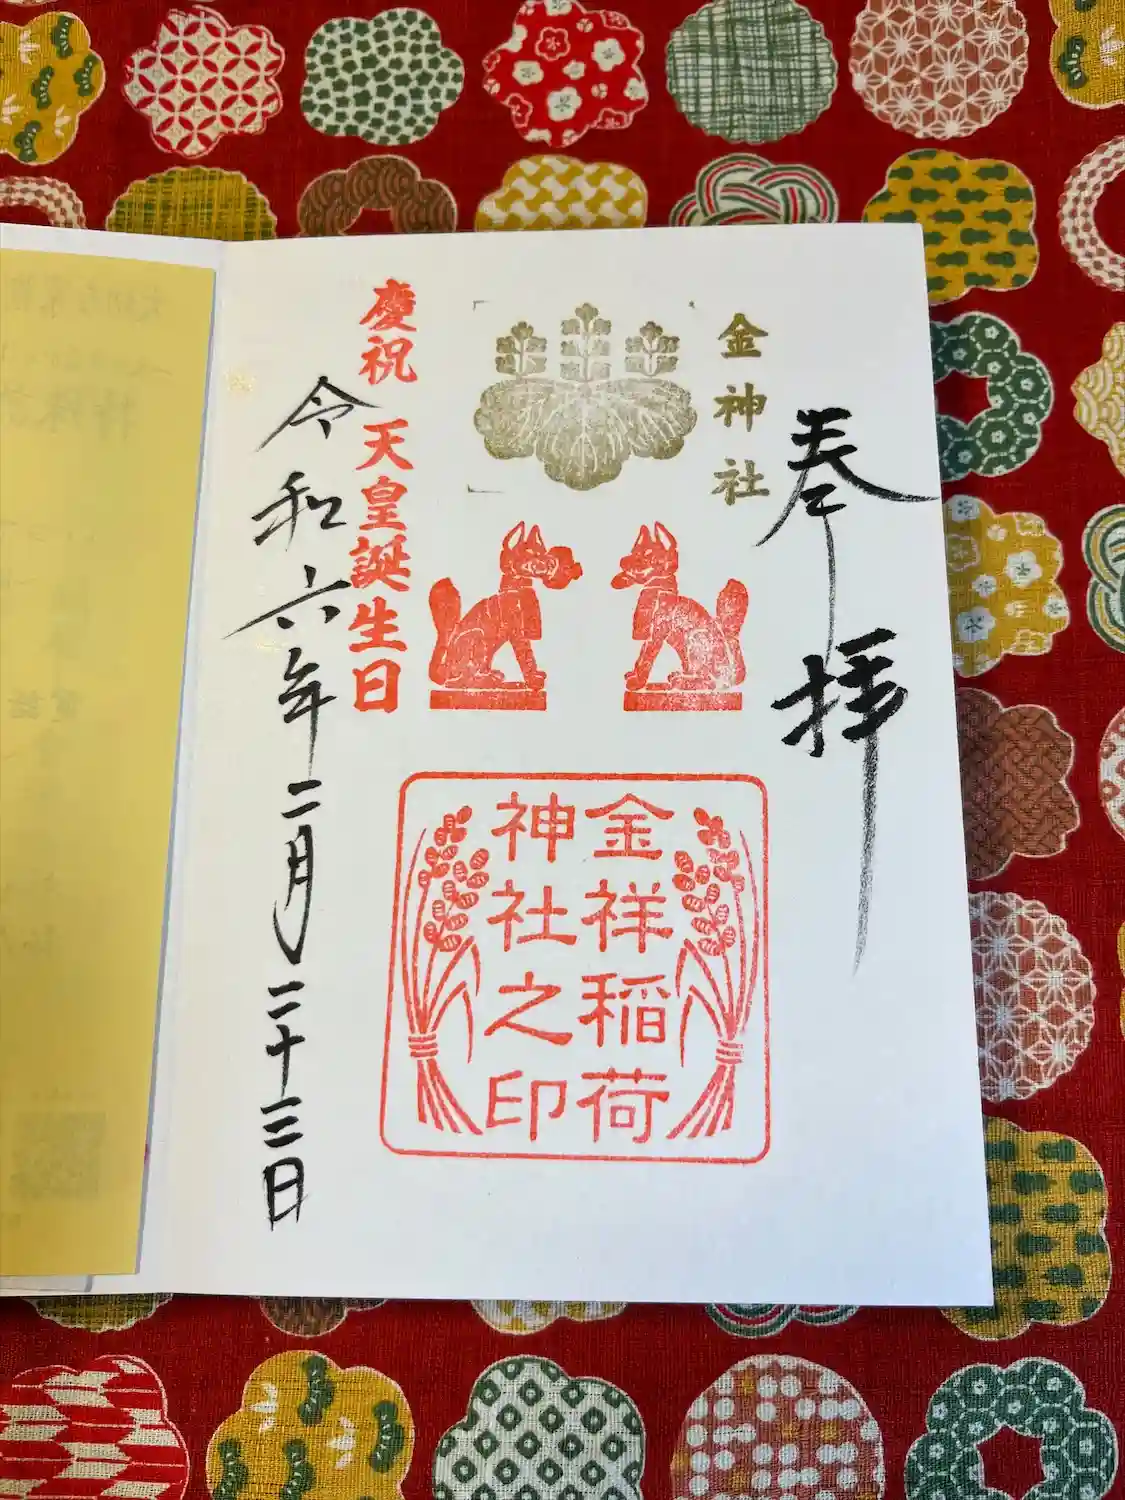 奉拝
金神社
金祥稲荷
神社之印
慶祝 天皇誕生日
令和六年二月二十三日